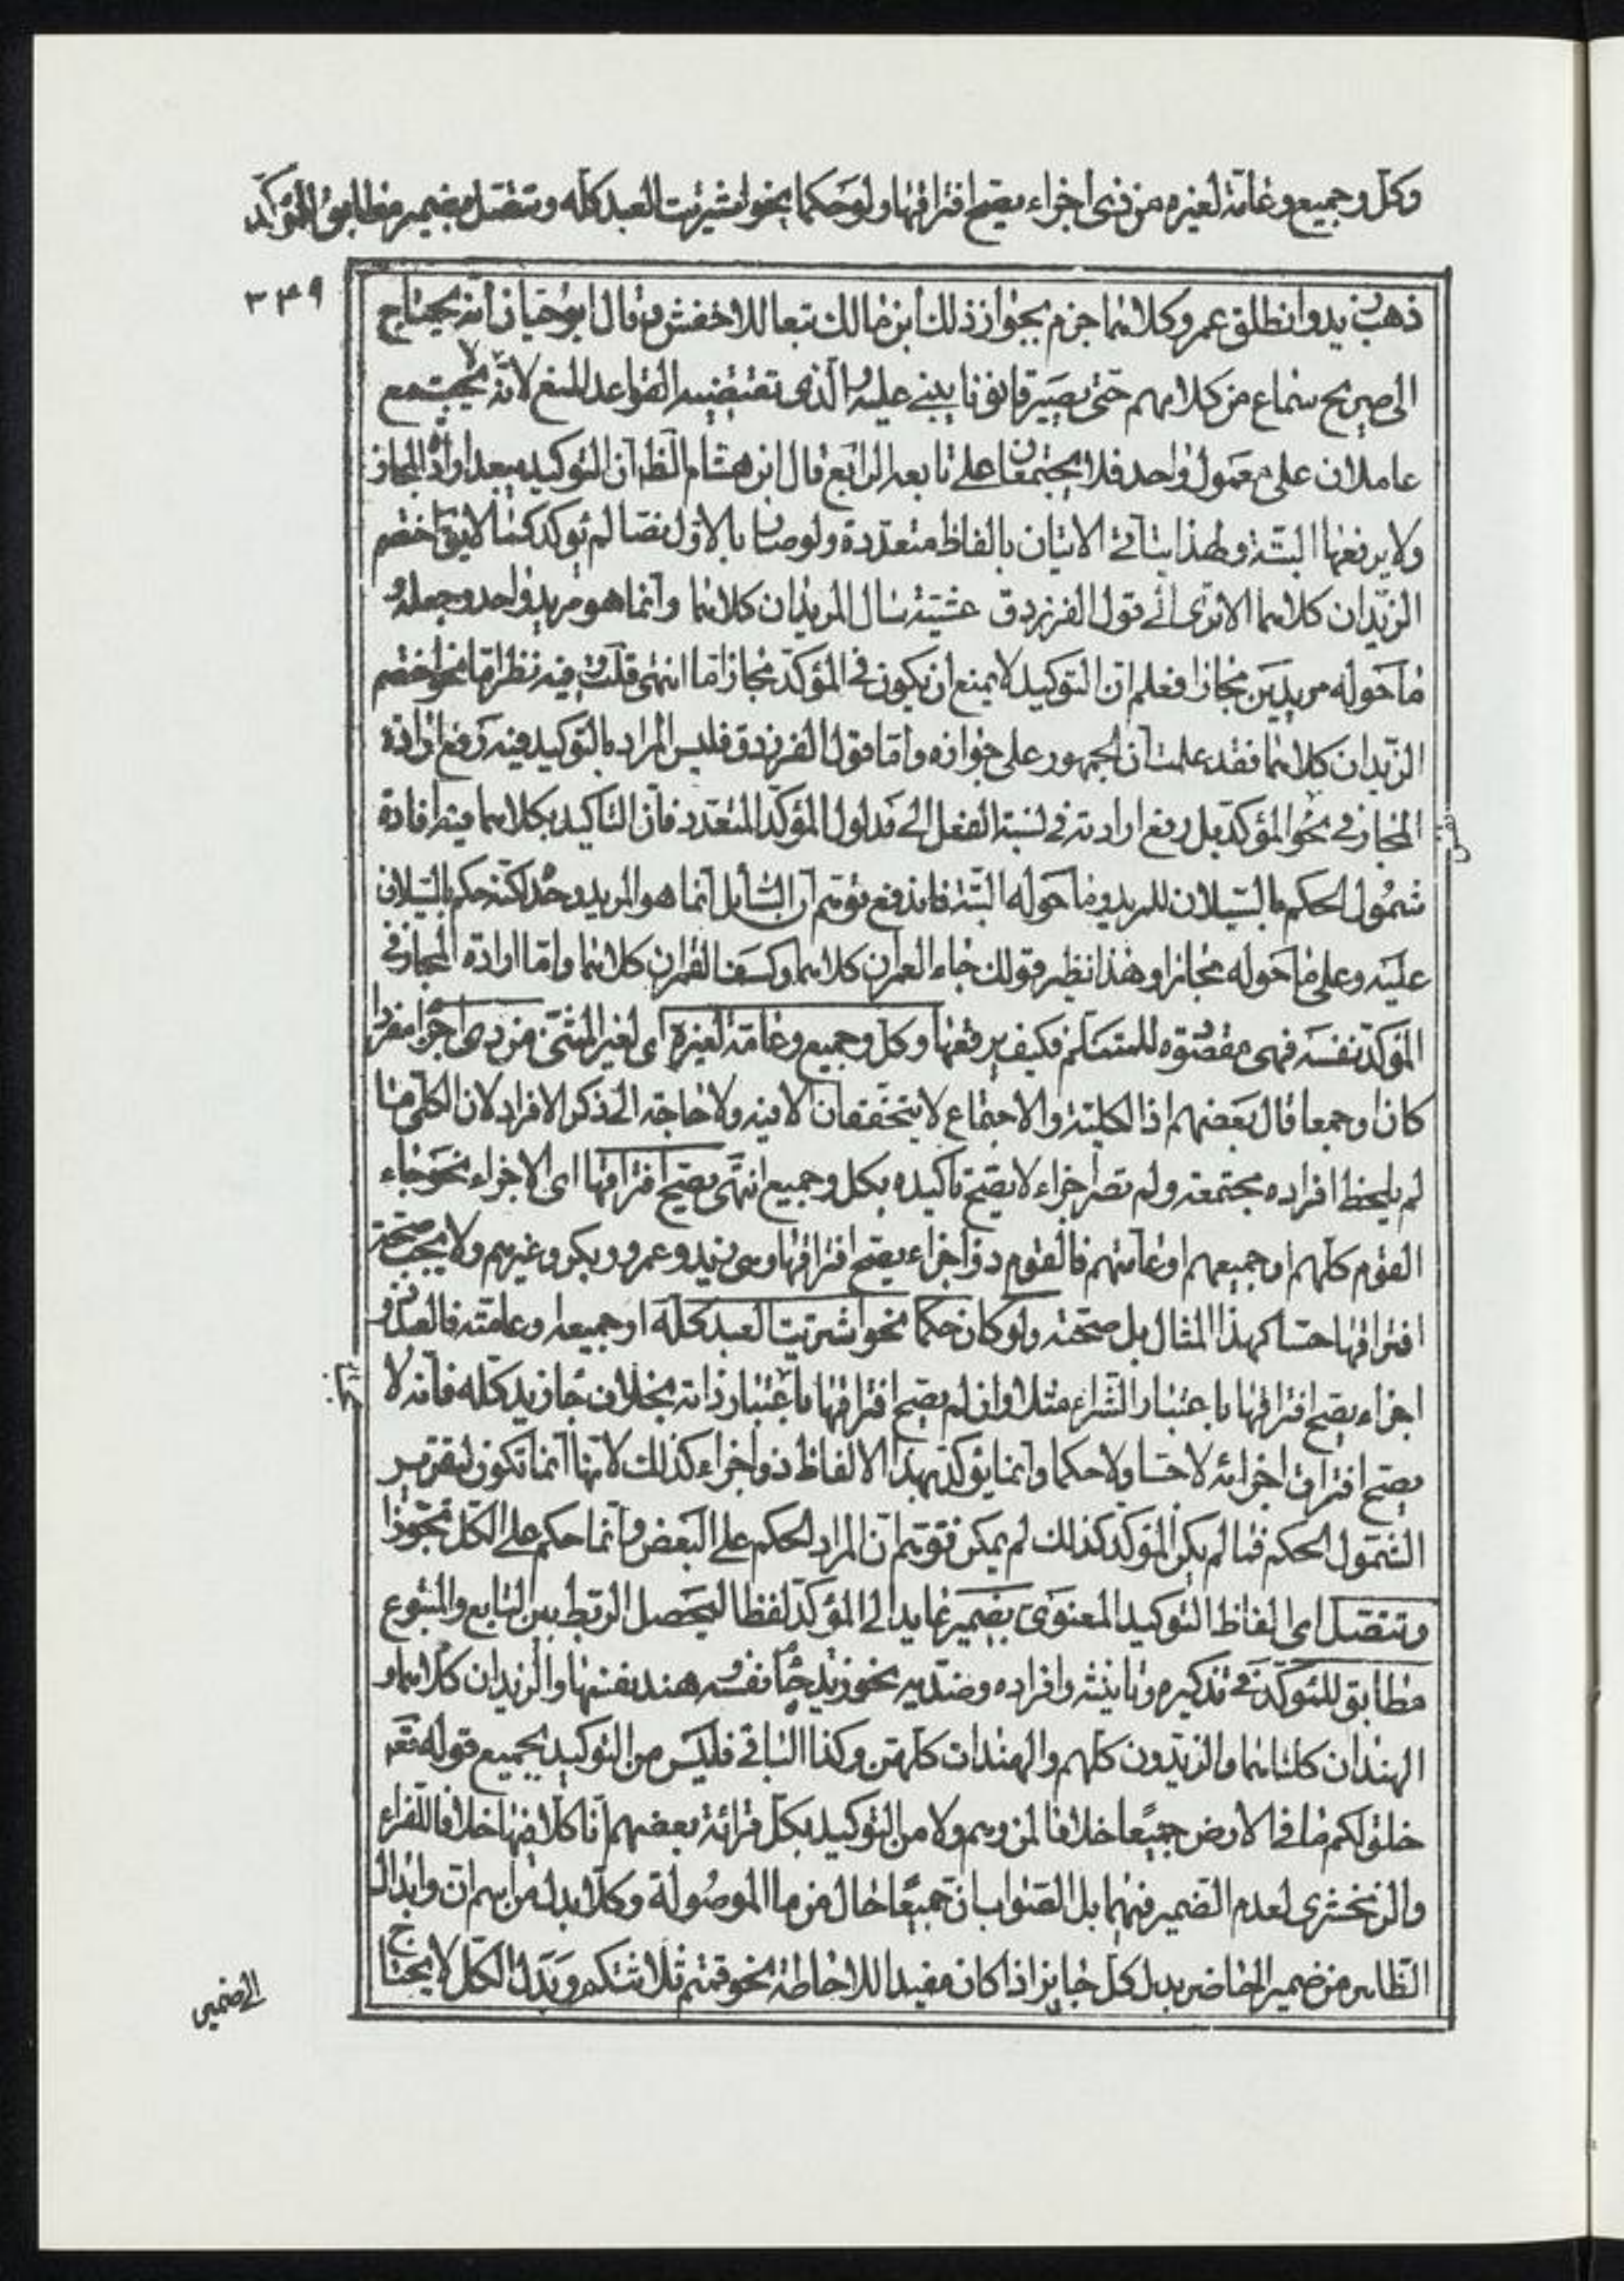 وكلّ وجميع وعامّة لغيره من ذى اجزاء يصحّ افتراقها ولو حكما نحو اشتريت العبد كلّه وتتّصل بضمير مطابق للمؤكّد
٣٤٩
ذهب زيد وانطلق عمرو كلاهما جزم بجواز ذلك ابن مالك تبعا للاخفش وقال ابو حيان انّه يحتاج
الى صريح سماع من كلامهم حتى يصير قانونا يبنى عليه والّذى تقتضيه القواعد المنع لانّه لا يجتمع
عاملان على معمول واحد فلا يجتمعان على تابعه الرابع قال ابن هشام الظ انّ التوكيد يبعد ارادة المجاز
ولا يرفعها البتّة ولهذا يتاتّى الاتيان بالفاظ متعدّدة ولو صار بالاوّل نصّا لم يؤكد كما لا يق اختصم
الزيدان كلاهما الا ترى الى قول الفرزدق عشيّة سال المربدان كلاهما وانّما هو مربد واحد وجعله و
ما حوله مربدين مجازا فعلم انّ التوكيد لا يمنع ان يكون فى المؤكّد مجاز امّا انتهى قلت وفيه نظر امّا نحو اختصم
الزيدان كلاهما فقد علمت انّ الجمهور على جوازه وامّا قول الفرزدق فليس المراد بالتوكيد فيه رفع ارادة
المجاز فى نحو المؤكّد بل رفع ارادته فى نسبة الفعل الى مدلول المؤكّد المتعدّد فانّ التاكيد بكلاهما فيه افادة
شمول الحكم بالسّيلان للمربد وما حوله البتّة فاندفع توهّم انّ السّايل انّما هو المربد وحده لكنّه حكم بالسّيلان
عليه وعلى ما حوله مجازا وهذا نظير قولك جاء العمران كلاهما وكسف القمران كلاهما وامّا ارادة المجاز فى
المؤكّد نفسه فهى مقصوده للمتكلّم فكيف يرفعها وكلّ وجميع وعامّة لغيره اى لغير المثنّى من ذى اجزاء مفردا
كان او جمعا قال بعضهم اذ الكلية والاجتماع لا يتحقّقان الا فيه ولا حاجة الى ذكر الافراد لان الكلّى ما
لم يلحظ افراده مجتمعة ولم تصر اجزاء لا يصحّ تاكيده بكل وجميع انتهى يصحّ افتراقها اى الاجزاء نحو جاء
القوم كلّهم او جميعهم او عامّتهم فالقوم ذو اجزاء يصحّ افتراقها وهى زيد وعمرو وبكر وغيرهم ولا يجب صحّة
افتراقها حسّا كهذا المثال بل صحّته ولو كان حكما نحو اشتريت العبد كلّه او جميعه او عامّته فالعبد ذو
اجزاء يصحّ افتراقها باعتبار الشّراء مثلا وان لم يصحّ افتراقها باعتبار ذاته بخلاف جاء زيد كلّه فانّه لا
يصحّ افتراق اجزائه لا حسّا ولا حكما وانّما يؤكّد بهذا الالفاظ ذو اجزاء كذلك لانّها انّما تكون لتقرير
الشمول الحكم فما لم يكن المؤكّد كذلك لم يمكن توهّم انّ المراد الحكم على البعض وانّما حكم على الكلّ تجوّزا
وتتّصل اى الفاظ التوكيد المعنوى بضمير عايد الى المؤكّد لفظا ليحصل الربط بين التابع والمتبوع
مطابق للمؤكّد فى تذكيره وتانيثه وافراده وضدّيه نحو زيد جاء نفسه و هند نفسها والزيدان كلاهما و
الهندان كلتاهما والزيدون كلّهم والهندات كلّهن وكذا الباقى فليس من التوكيد بجميع قوله تعّه
خلق لكم ما فى الارض جميعا خلافا لمن وهم ولا من التوكيد بكلّ قرائة بعضهم انّا كلا فيها خلافا للفراء
والزمخشرى لعدم الضمير فيهما بل الصّواب انّ جميعًا حال من ما الموصولة وكلا بدل من اسم انّ وابدال
الظاهر من ضمير الحاضر بدل كلّ جايز اذا كان مفيدا للاحاطة نحو قمتم ثلاثتكم وبدل الكلّ لا يحتاج
الى ضمير